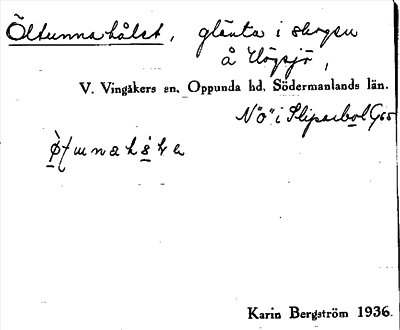 Öltunnahålet, glänta i skogen
å Högsjö,
V. Vingåkers sn. Oppunda hd. Södermanlands län.
N "ö" i Sliparbol G55
Karin Bergström 1936.